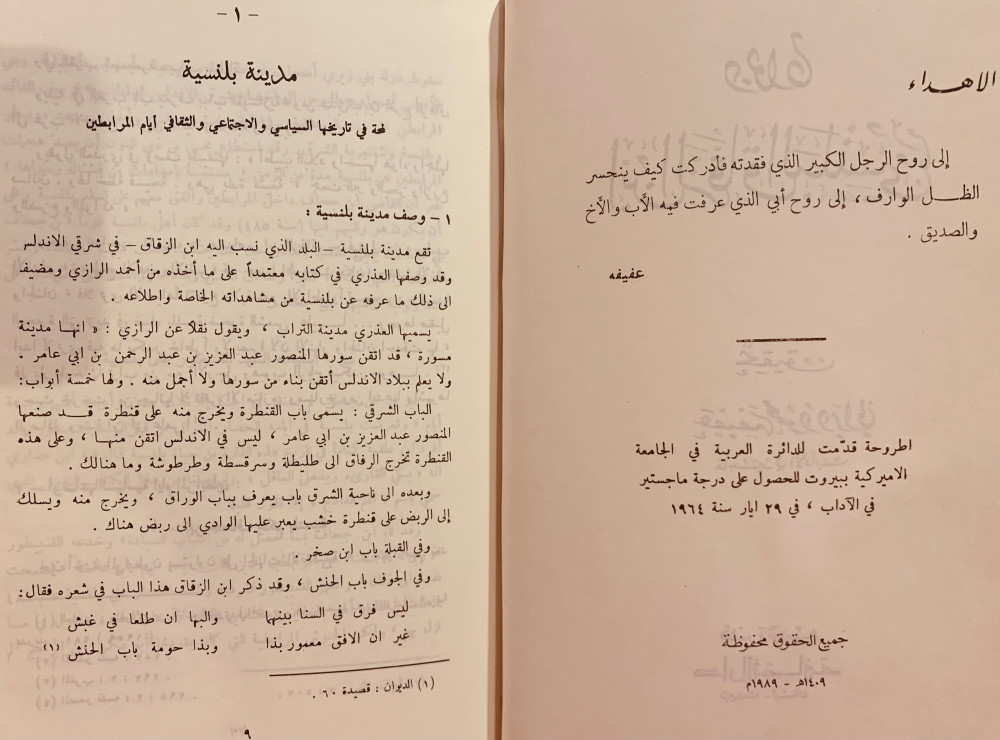 الاهداء
إلى روح الرجل الكبير الذي فقدته فأدركت كيف ينحسر
الظل الوارف ، إلى روح أبي الذي عرفت فيه الأب والأخ
والصديق .
عفيفه
اطروحة قدّمت للدائرة العربية في الجامعة
الاميركية ببيروت للحصول على درجة ماجستير
في الآداب ، في ٢٩ ايار سنة ١٩٦٤
جميع الحقوق محفوظة
١٤٠٩هـ - ١٩٨٩م
- ١ -
مدينة بلنسية
لمحة في تاريخها السياسي والاجتماعي والثقافي أيام المرابطين
١ - وصف مدينة بلنسية :
تقع مدينة بلنسية - البلد الذي نسب اليه ابن الزقاق - في شرقي الاندلس
وقد وصفها العذري في كتابه معتمداً على ما أخذه من أحمد الرازي ومضيفاً
الى ذلك ما عرفه عن بلنسية من مشاهداته الخاصة واطلاعه .
يسميها العذري مدينة التراب ، ويقول نقلاً عن الرازي : « انها مدينة
مسورة ، قد اتقن سورها المنصور عبد العزيز بن عبد الرحمن بن ابي عامر .
ولا يعلم ببلاد الاندلس أتقن بناء من سورها ولا أجمل منه . ولها خمسة أبواب:
الباب الشرقي : يسمى باب القنطرة ويخرج منه على قنطرة قد صنعها
المنصور عبد العزيز بن ابي عامر ، ليس في الاندلس اتقن منها ، وعلى هذه
القنطرة تخرج الرفاق الى طليطلة وسرقسطة وطرطوشة وما هنالك .
وبعده الى ناحية الشرق باب يعرف بباب الوراق ، ويخرج منه ويسلك
إلى الربض على قنطرة خشب يعبر عليها الوادي الى ربض هناك .
وفي القبلة باب ابن صخر .
وفي الجوف باب الحنش ، وقد ذكر ابن الزقاق هذا الباب في شعره فقال:
ليس فرق في السنا بينهما والبها ان طلعا في غبش
غير ان الافق معمور بذا وبذا حومة باب الحنش (١)
(١) الديوان : قصيدة ٦٠ .
٩